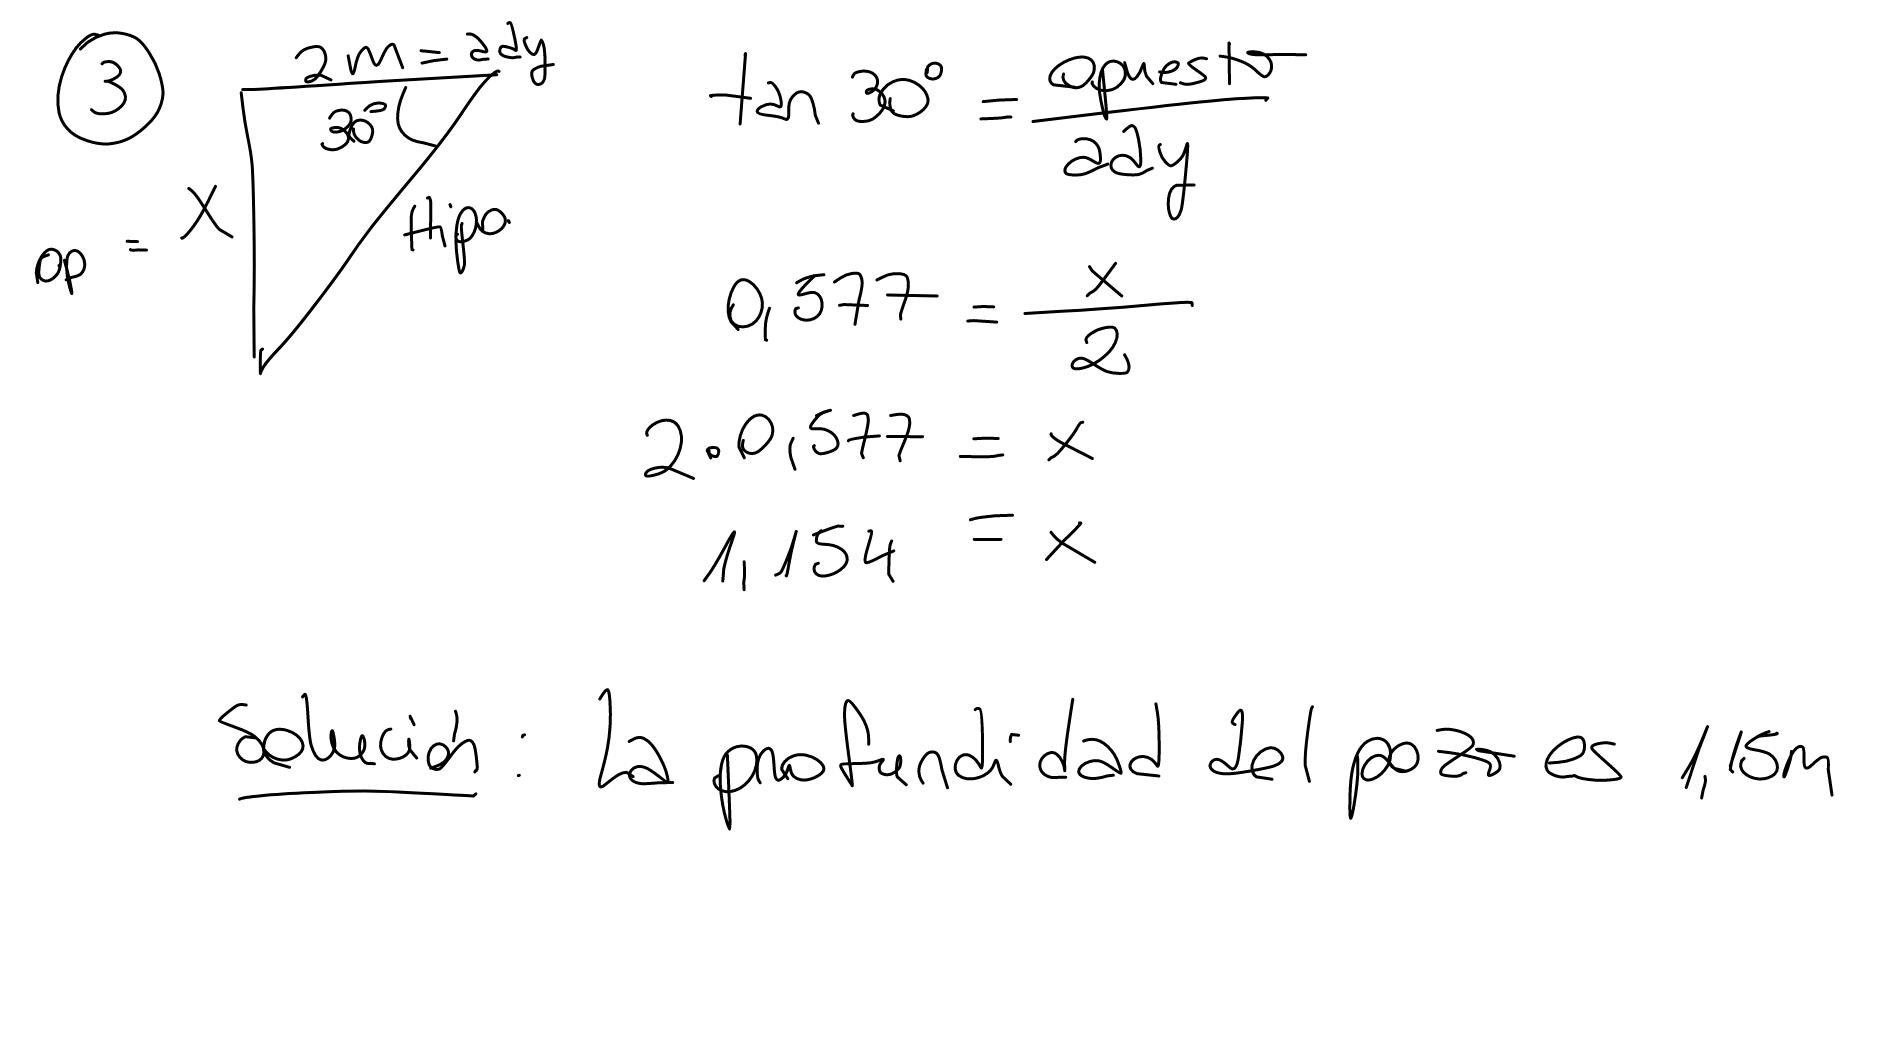 3
2 m = ady
30°
x
op =
Hipo
tan 30° = opuesto / ady
0,577 = x / 2
2 · 0,577 = x
1,154 = x
Solución: La profundidad del pozo es 1,15m